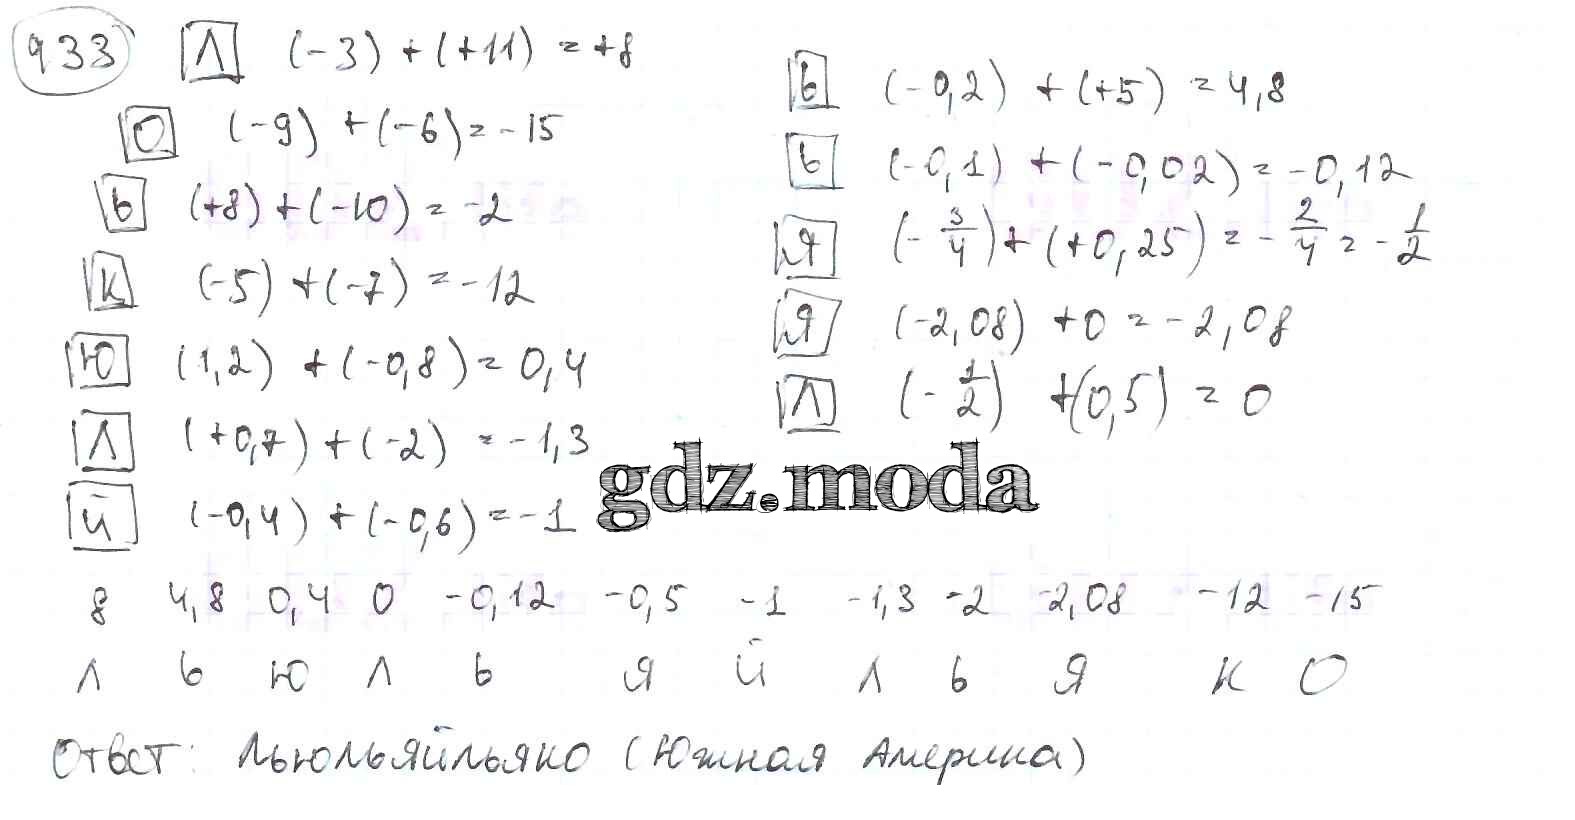 933 Л (-3) + (+11) = +8
О (-9) + (-6) = -15
Ь (+8) + (-10) = -2
К (-5) + (-7) = -12
Ю (1,2) + (-0,8) = 0,4
Л (+0,7) + (-2) = -1,3
Й (-0,4) + (-0,6) = -1
Ь (-0,2) + (+5) = 4,8
Ь (-0,1) + (-0,02) = -0,12
Я (-3/4) + (+0,25) = -2/4 = -1/2
Я (-2,08) + 0 = -2,08
Л (-1/2) + (0,5) = 0
gdz.moda
8 4,8 0,4 0 -0,12 -0,5 -1 -1,3 -2 -2,08 -12 -15
Л Ь Ю Л Ь Я Й Л Ь Я К О
Ответ: Льюльяйльяко (Южная Америка)